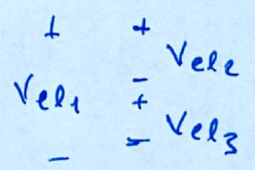 + +
Vel2
Vel1 -
+
- Vel3
-